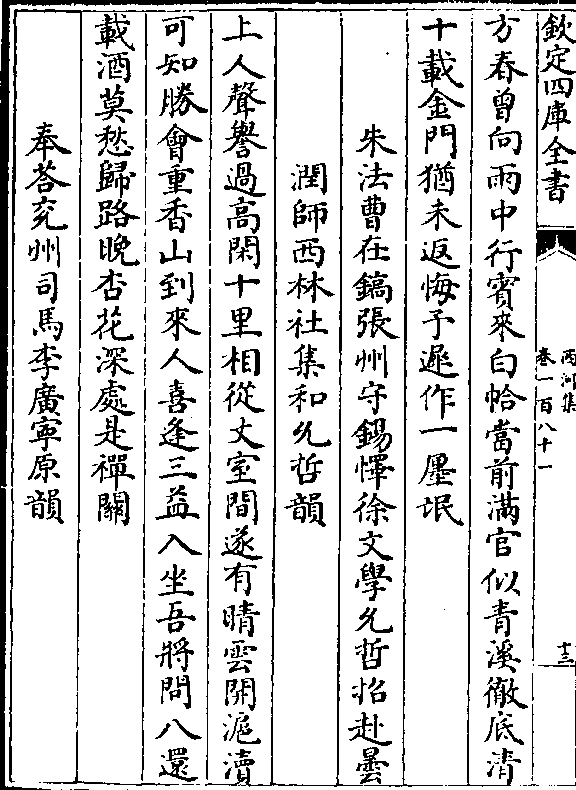 欽定四庫全書
西河集
卷一百八十一
十三
方春曾向雨中行賓來白帢當前滿官似青溪徹底清
十載金門猶未返悔予遲作一廛氓
朱法曹在鎬張州守錫懌徐文學允哲招赴曇
潤師西林社集和允哲韻
上人聲譽過高閑十里相從丈室間遂有晴雲開滬瀆
可知勝會重香山到來人喜逢三益入坐吾將問八還
載酒莫愁歸路晚杏花深處是禪關
奉荅兖州司馬李廣寧原韻